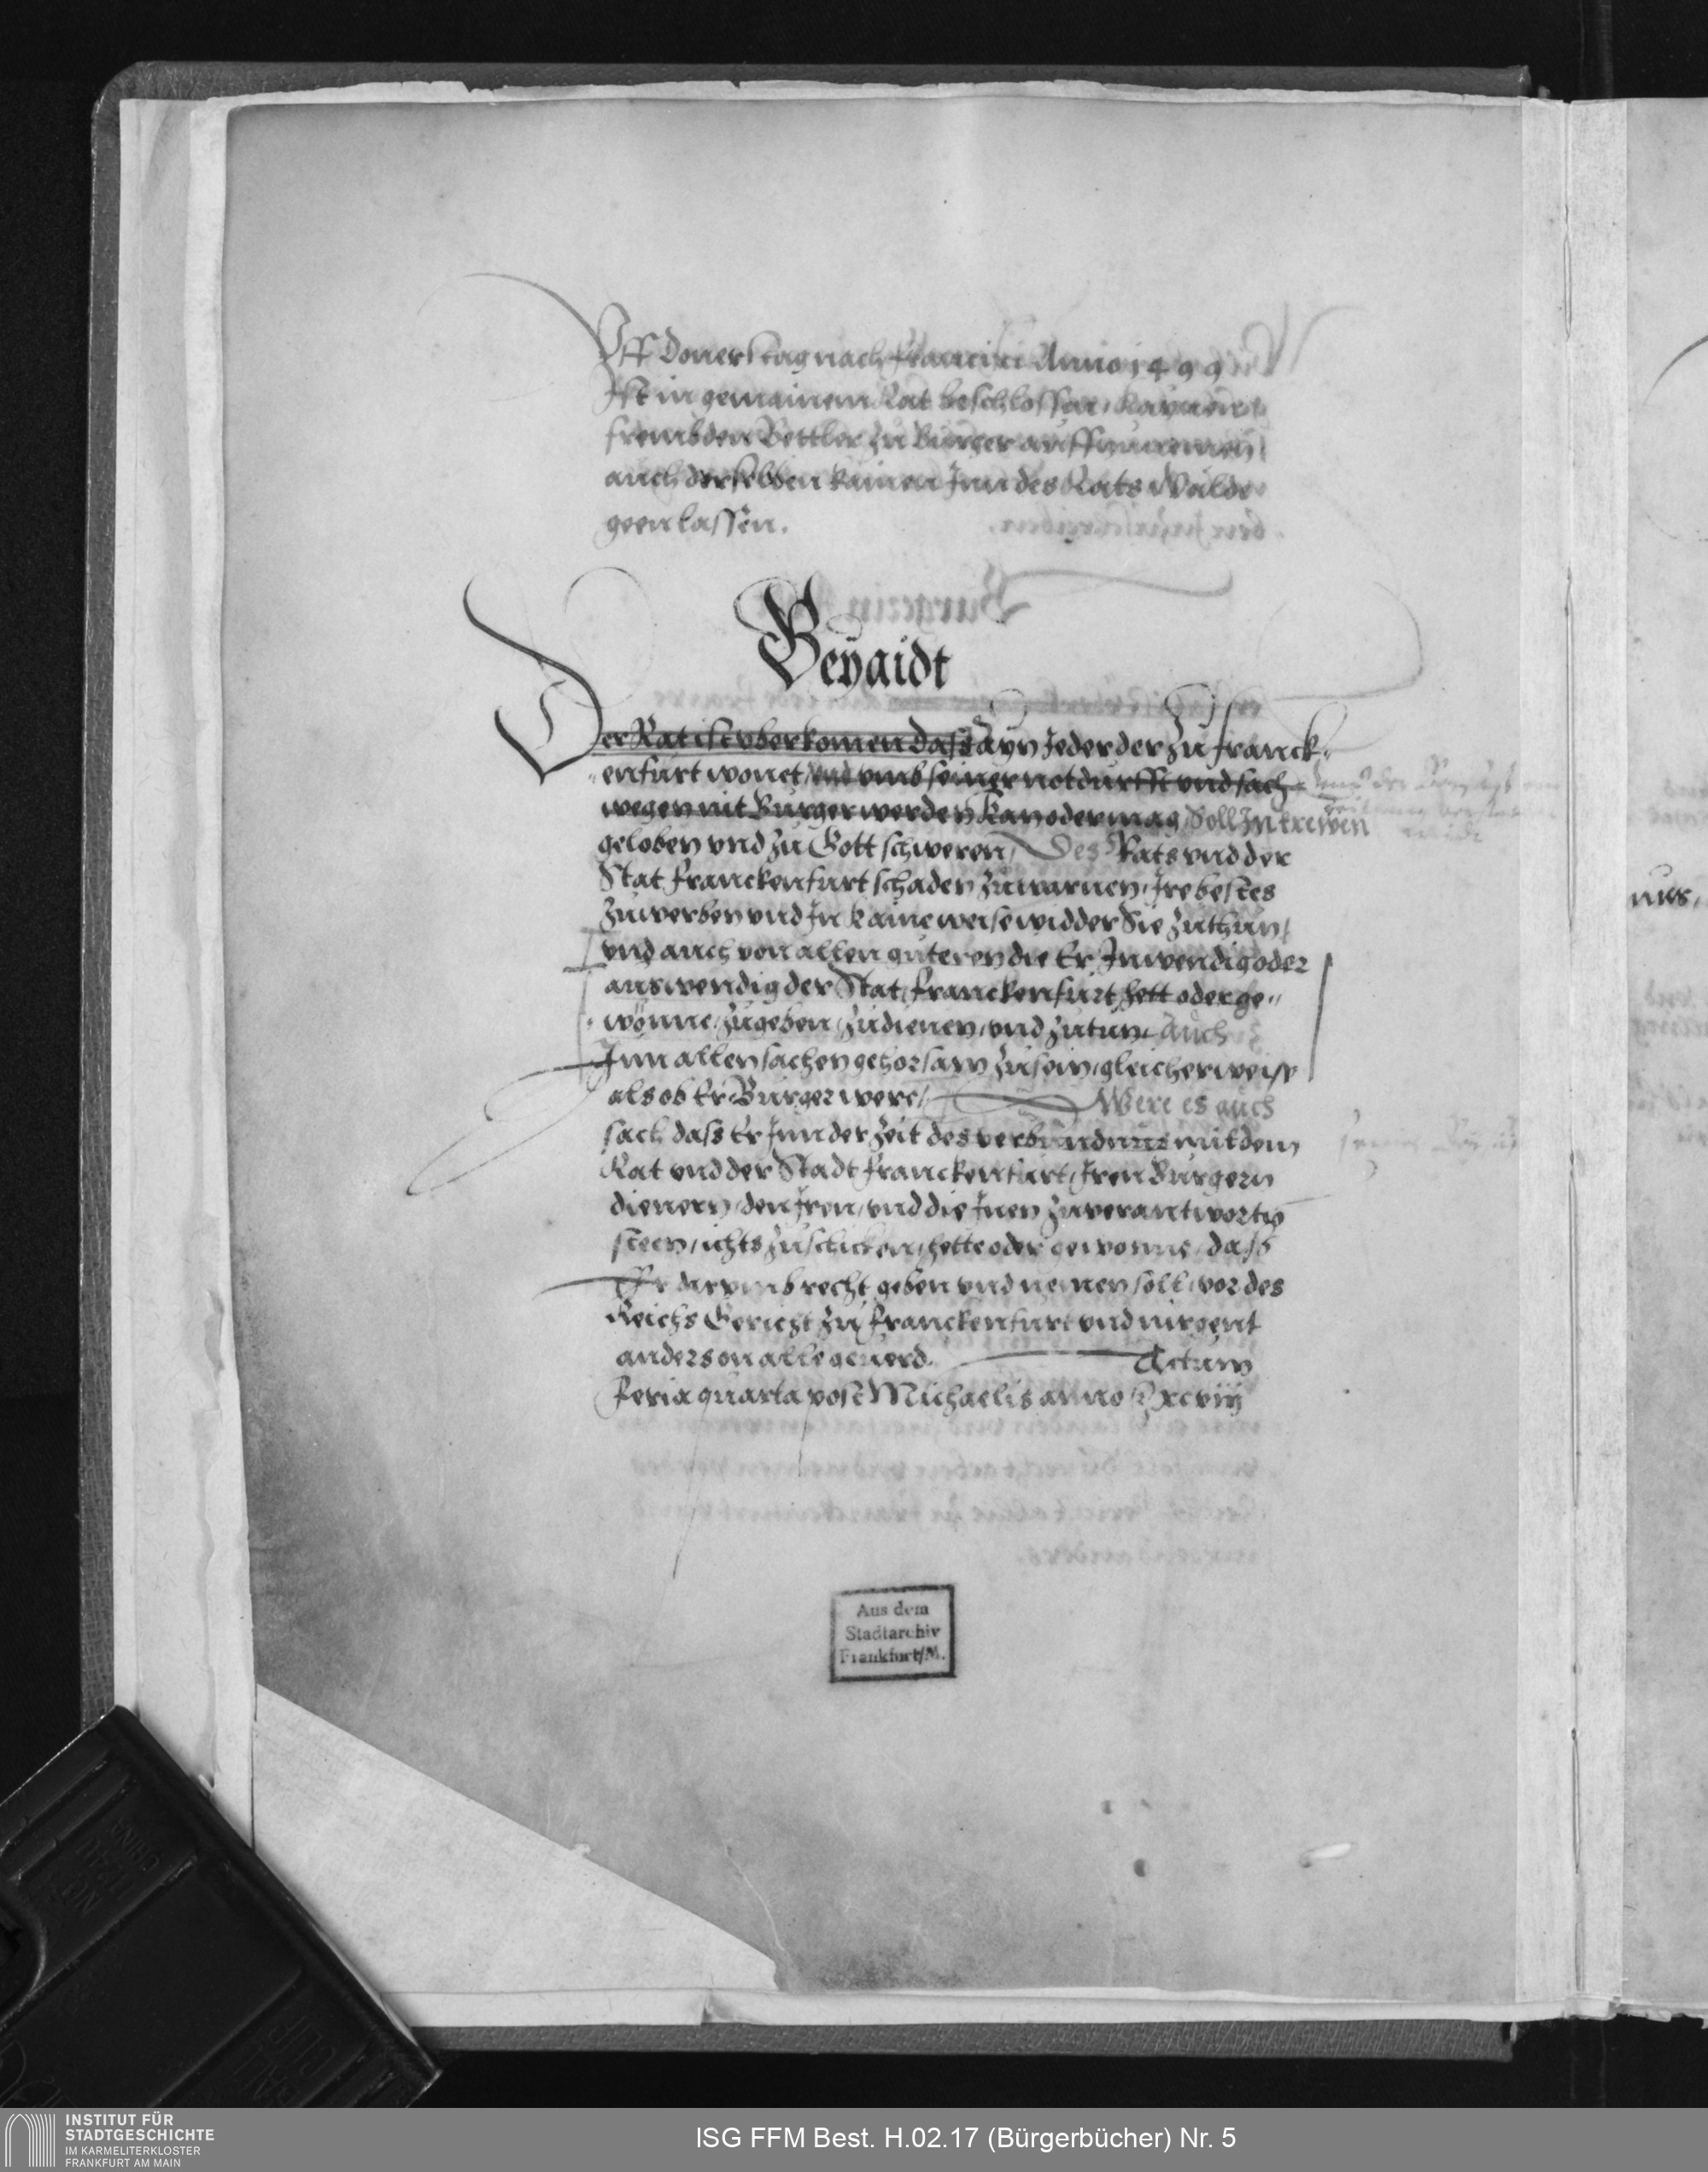 Vff Donerstag nach Francisci Anno 1499
Ist in gemainem Rat beschlossen, kaynen
frembden Bettler zu Burger auffzunemen,
auch derselben kainen Inn des Rats Wälde
geen lassen.
Beyaidt
Der Rat ist vberkomen dass ayn Jeder der Zu franck„
enfurt wonet, vnd vmb seiner notdurfft vnd sach
wegen nit Burger werden kan oder mag, Soll In trewen
geloben vnd zu Gott schweren, Des Rats vnd der
Stat franckenfurt schaden zuwarnen, Ire bestes
Zuwerben vnd In kaine weise widder Sie zuthun,
vnd auch von allen guteren die Er Inwendig oder
auswendig der Stat franckenfurt hett oder ge„
wönne, zugeben, zudienen, vnd zutun, Auch
Inn allen sachen gehorsam zusein, gleicherweise
als ob Er Burger were, Were es auch
sach dass Er Inn der Zeit des verbundnus mit dem
Rat vnd der Stadt franckenfurt, Iren Burgern
dienern, den Iren, vnd die Inen zuverantworten
steen, ichts zuschicken, hette oder gewonne, dass
Er darvmb recht geben vnd nemen soll, vor des
Reichs Gericht zu franckenfurt vnd nirgent
anders on alle geuerd. Actum
feria quarta post Michaelis anno xcviij
Aus dem
Stadtarchiv
Frankfurt/M.
INSTITUT FÜR
STADTGESCHICHTE
IM KARMELITERKLOSTER
FRANKFURT AM MAIN
ISG FFM Best. H.02.17 (Bürgerbücher) Nr. 5